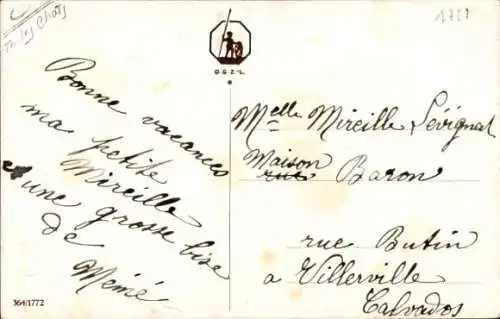 Th les Chats
1727
O.G.Z.-L.
Bonne vacances
ma petite
Mireille
et une grosse bise
de
Mémé
Melle Mireille Lévignat
Maison
rue Baron
rue Butin
a Villerville
Calvados
364/1772